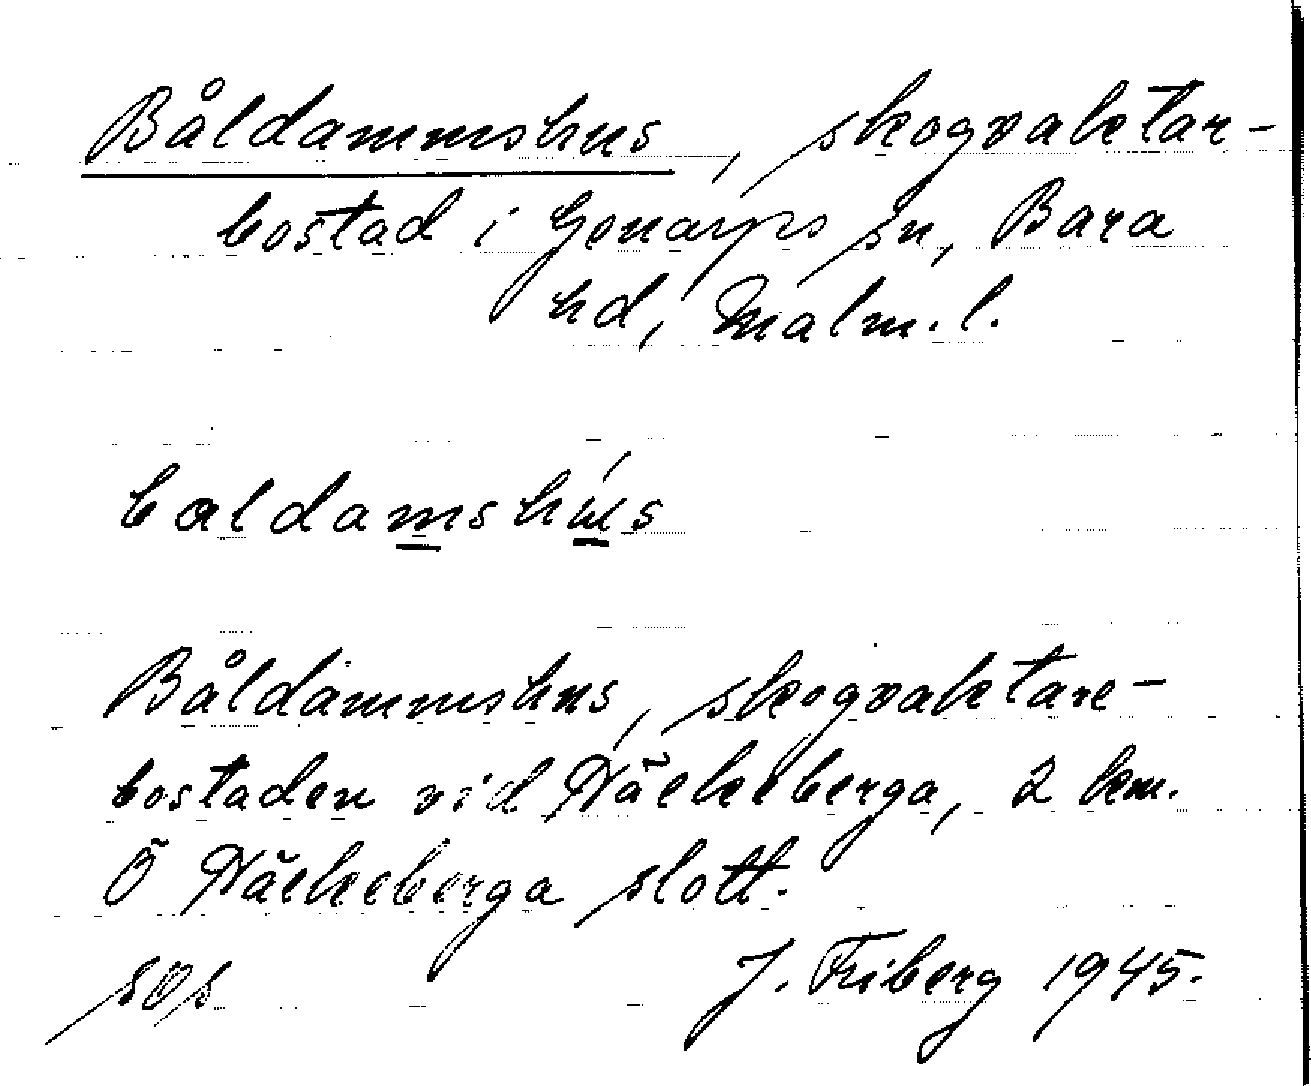 Båldammshus, skogvaktar-
bostad i Genarps sn, Bara
hd, Malm. l.
baldamshús
Båldammshus, skogvaktare-
bostaden vid Häckeberga, 2 km.
Ö Häckeberga slott.
J. Friberg 1945.